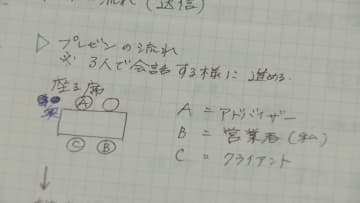 の流れ(送信)
▷ プレゼンの流れ
※ 3人で会話する様に進める
座る席
A
C B
A = アドバイザー
B = 営業者(私)
C = クライアント